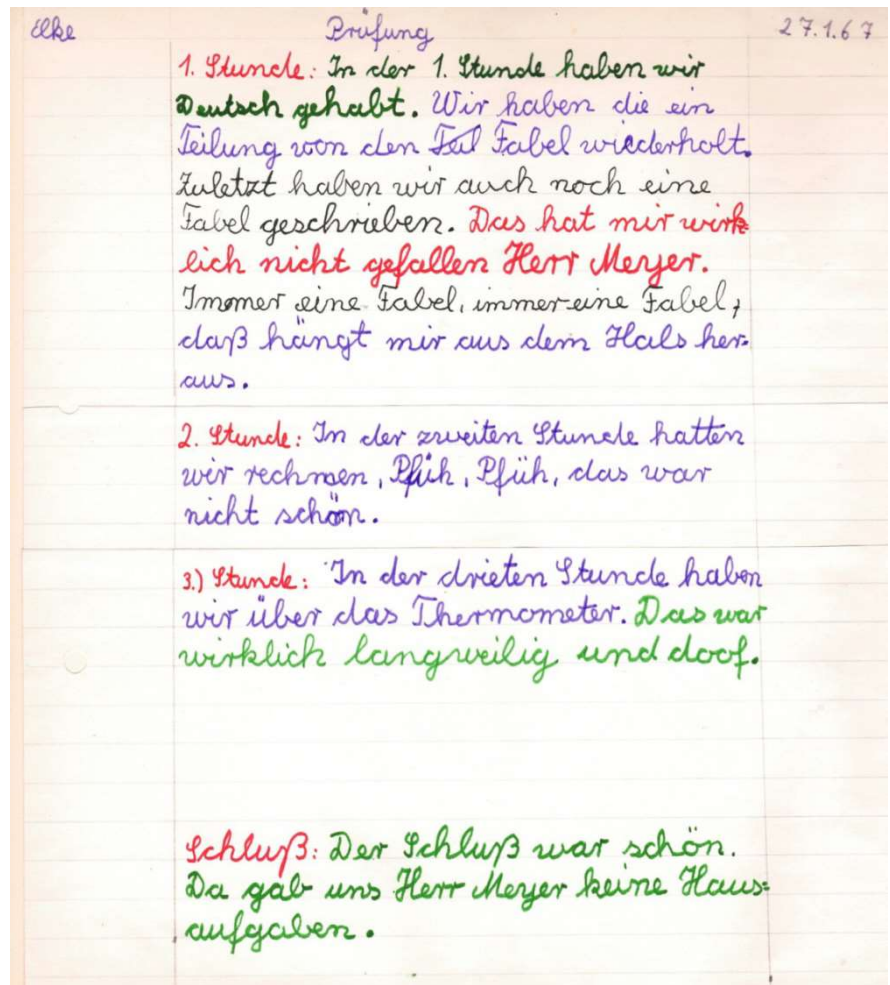 Elke Prüfung 27.1.67
1. Stunde: In der 1. Stunde haben wir
Deutsch gehabt. Wir haben die ein
Teilung von den Fal Fabel wiederholt.
Zuletzt haben wir auch noch eine
Fabel geschrieben. Das hat mir wirk=
lich nicht gefallen Herr Meyer.
Immer eine Fabel, immer eine Fabel,
daß hängt mir aus dem Hals her-
aus.
2. Stunde: In der zweiten Stunde hatten
wir rechnen, Pfüh, Pfüh, das war
nicht schön.
3.) Stunde: In der drieten Stunde haben
wir über das Thermometer. Das war
wirklich langweilig und doof.
Schluß: Der Schluß war schön.
Da gab uns Herr Meyer keine Haus=
aufgaben.